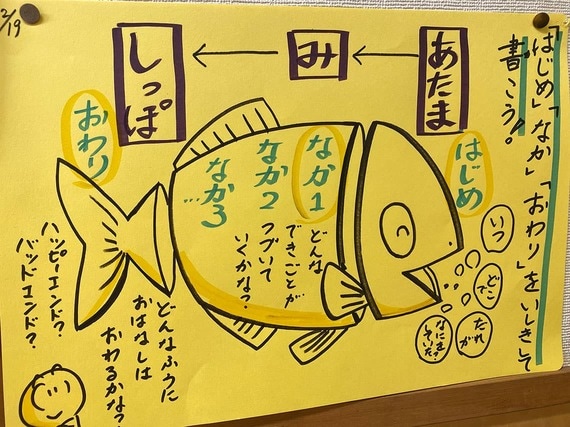 2/19
「はじめ」「なか」「おわり」をいしきして
書こう!!
あたま
み
しっぽ
はじめ
いつ
どこで
だれが
なにをしていた?
なか1
なか2
なか3
…
どんな
できごとが
つづいて
いくかな?
おわり
どんなふうに
おはなしは
おわるかな?
ハッピーエンド?
バッドエンド?